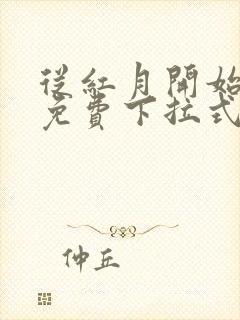 從紅月開始
免費下拉式
仲丘